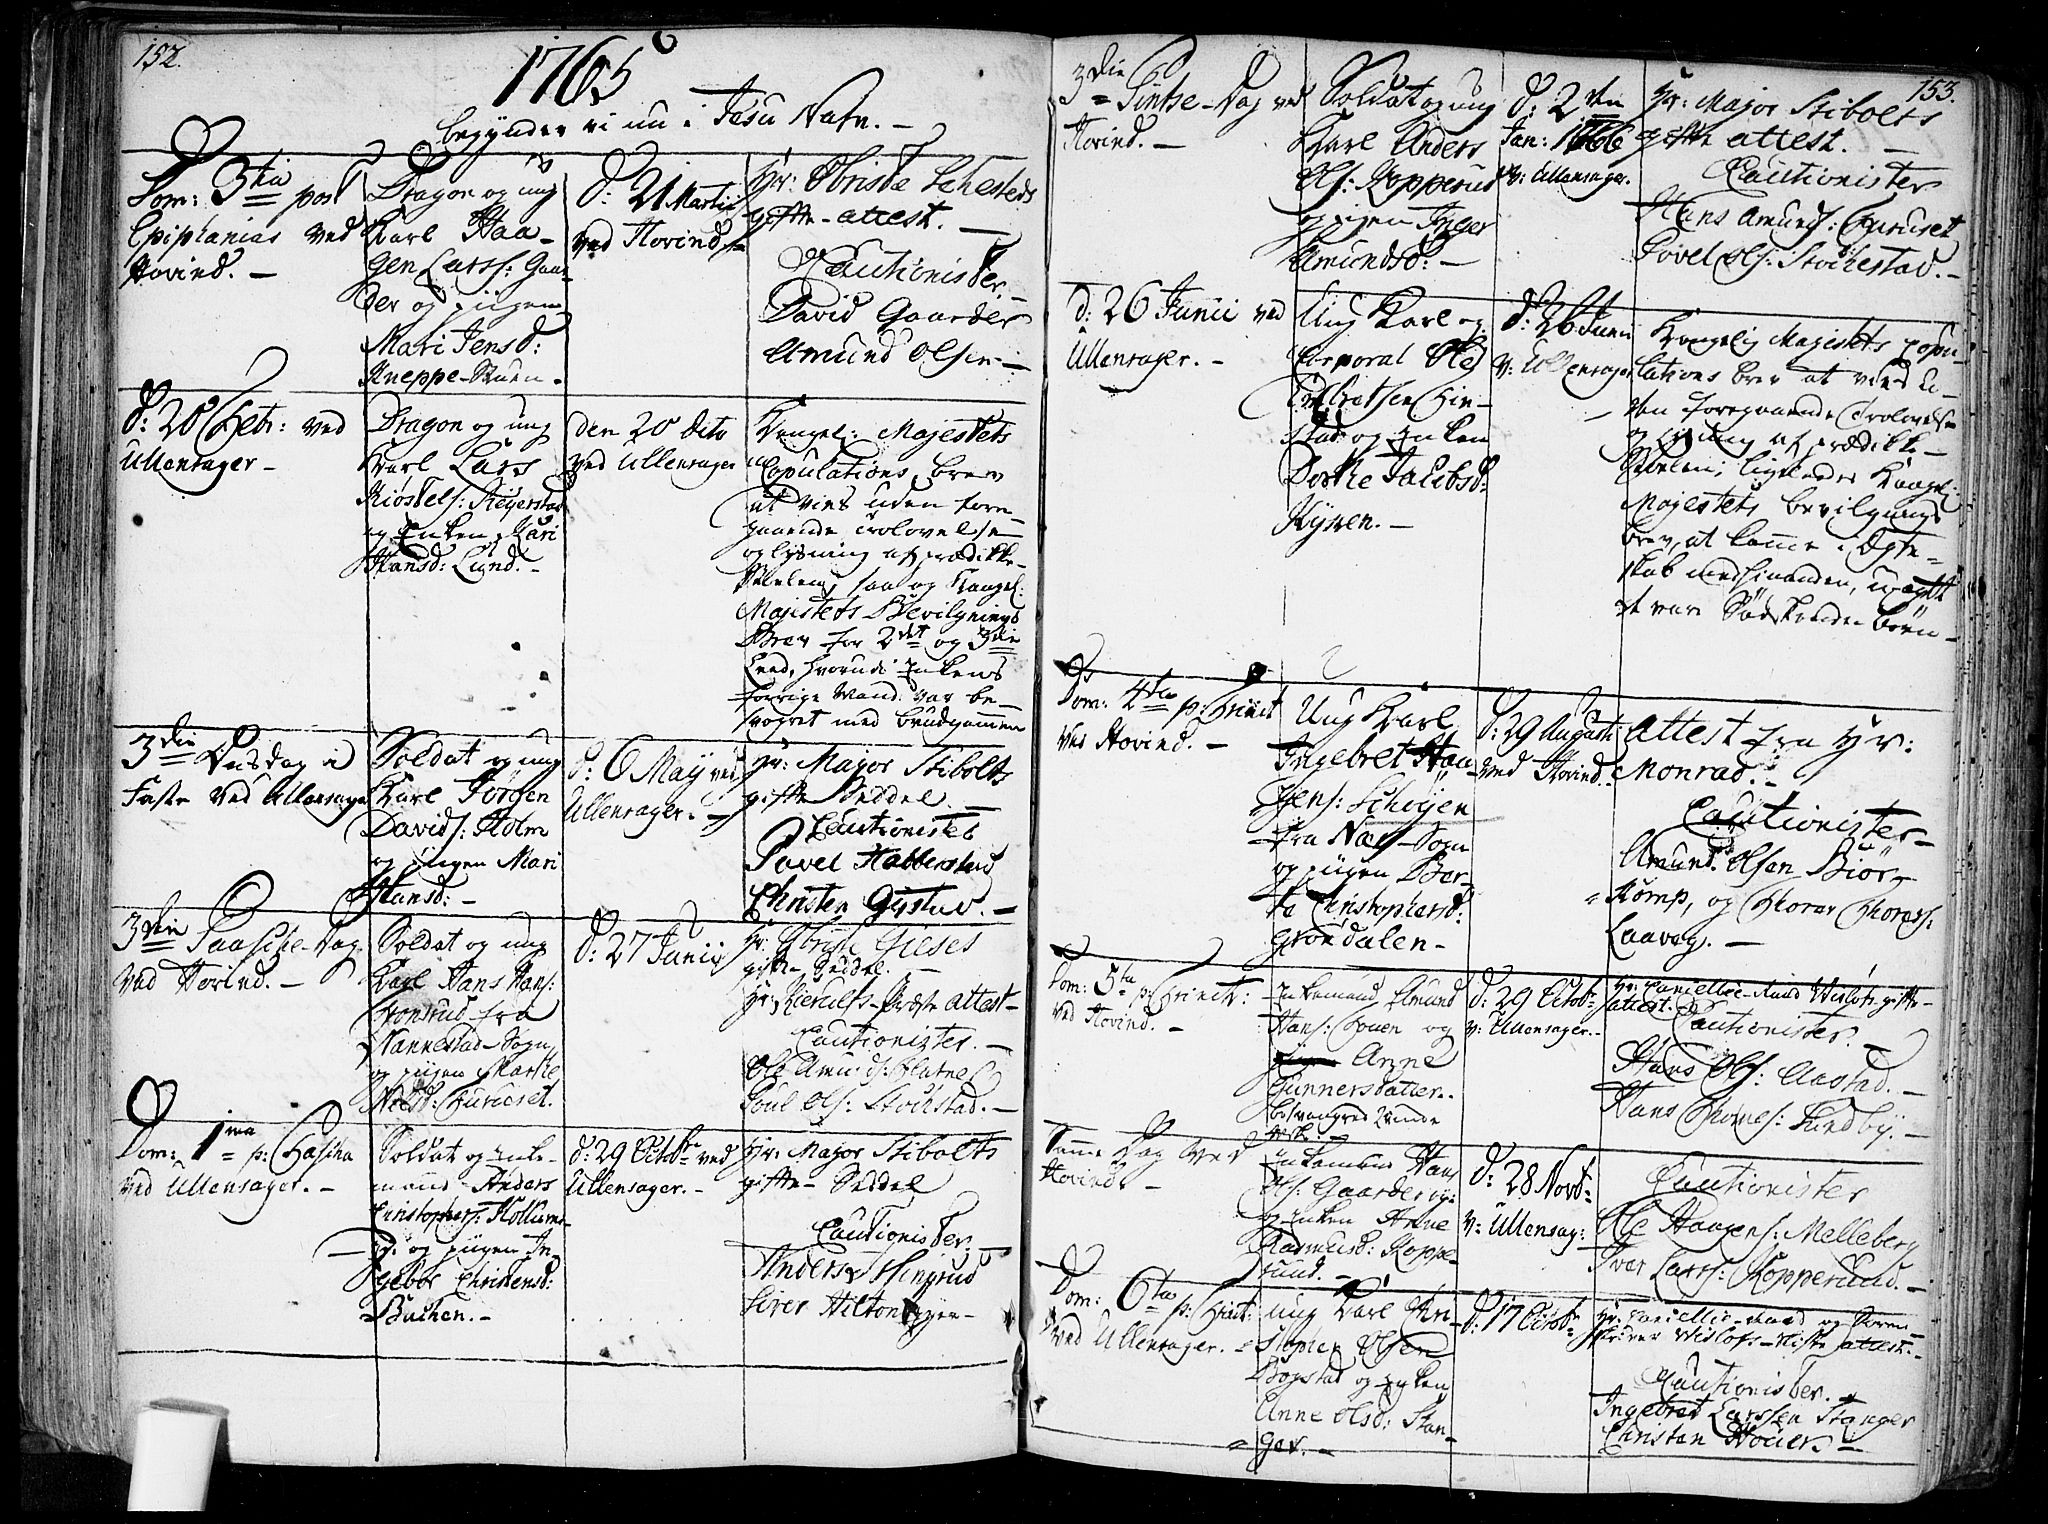 152.
1765
begynder vi nu i Jesu Nafn. -
Dom: 3tia post
Epiphanias ved
Hovind. -
Dragon og ung
Karl Haa-
gen Larss: Gaar-
der og piigen
Mari Jensd:
Kneppe-Stuen.
d: 21 Martii
ved Hovind
Hr: Obriste Sehesteds
gifte-attest. -
Cautionister.
David Gaarder
Amund Olsen -
d: 20 Febr: ved
Ullensager -
Dragon og ung
Karl Lars
Kiøstels: Røgerstad
og Enken Kari
Hansd: Lund. -
den 20 dito
ved Ullensager
Kongel: Majestets
Copulations brev
at vies uden fore-
gaaende trolovelse
og lysning af prædikke-
Stolen, saa og Kongel:
Majestets Bevilgnings
Brev for 2det og 3die
Leed, hvorudi Enkens
forrige Mand var be-
svogret med brudgommen
3die Tiisdag i
Faste ved Ullensager
Soldat og ung
Karl Jørgen
Davids: Holm
og piigen Mari
Hansd: -
d: 6 May ved
Ullensager. -
Hr: Major Stibolts
gifte Seddel. -
Cautionister
Povel Habberstad
Christen Gystad. -
3die Paaske-Dag
ved Hovind. -
Soldat og ung
Karl Hans Hans:
fra
Nannestad-Sogn,
og piigen Marthe
Nielsd: Furuset.
d: 27 Junii
Hr: Obriste Gieses
gifte Seddel.
Hr: Kierulfs-Præste attest-
Cautionister. -
Ole Amunds: Flatne
Poul Ols: Stochstad. -
Dom: 1ma p: Pascha
ved Ullensager. -
Soldat og Enke-
mand Anders
Christophers:
og piigen In-
gebor Christensd:
Bachen. -
d: 29 Octobr ved
Ullensager. -
Hr: Major Stibolts
gifte-Seddel
Cautionister.
Anders Hingrud
Siver
153.
3die Pintse-Dag ved
Hovind. -
Soldat og ung
Karl Anders
Ols: Kopperud
og piigen Inger
Amundsd: -
d: 2den
Jan: 1766
v: Ullensager.
Hr: Major Stibolts
gifte attest. -
Cautionister
Hans Amunds: Furuset
Povel Ols: Stochestad. -
d: 26 Junii ved
Ullensager. -
Ung Karl og
Corporal Ole
Engebretsen Hin-
stad og Enken
Dorthe Jacobsd:
Kysen. -
d: 26 Junii
v: Ullensager
Kongelig Majestets Copu-
lations brev at vies u-
den foregaaende trolovelse
og lysning af prædikke-
stolen; ligeledes Kongel:
Majestets bevilgnings
brev, at komme i Ægte-
skab med hinanden, uagtet
de vare Sødskende børn -
Dom: 4ta p: Trinit
ved Hovind. -
Ung Karl
Ingebret Haa-
gens: Schøyen
fra Næs-Sogn
og piigen Ber-
te Christophersd:
Grøndalen -
d: 29 Augusti
ved Hovind. -
Attest fra Hr:
Monrad. -
Cautionister -
Amund Olsen Biør-
Komp, og Thorer Thorers:
Laavog. -
Dom: 5ta p: Trinit:
ved Hovind. -
Enkemand Amund
Hans: Foen og
Anne
Gunnersdatter.
besvangred
d: 29 Octobr
v: Ullensager. -
Hr: Cancellie-Raad Wisløfs gifte-
attest.
Cautionister. -
Hans Ols: Aastad. -
Hans Thores: Sundby. -
Samme Dag ved
Hovind. -
Enkemand Hans
Ols: Gaarder og
Enken Anne
Rasmusd: Koppe-
rund. -
d: 28 Novbr
v: Ullensag:
Cautionister
Ole Haagens: Melleberg
Iver Larss: Kopperund. -
Dom: 6ta p: Trinit:
ved Ullensager. -
Ung Karl Chri-
stopher Olsen
Bogstad og Enken
Anne Olsd: Stan-
ger. -
d: 17 Octobr
Hr: Cancellie-Raad og Soren-
skriver Wisløfs-gifte attest. -
Cautionister. -
Ingebret Larssen Stanger
Christen